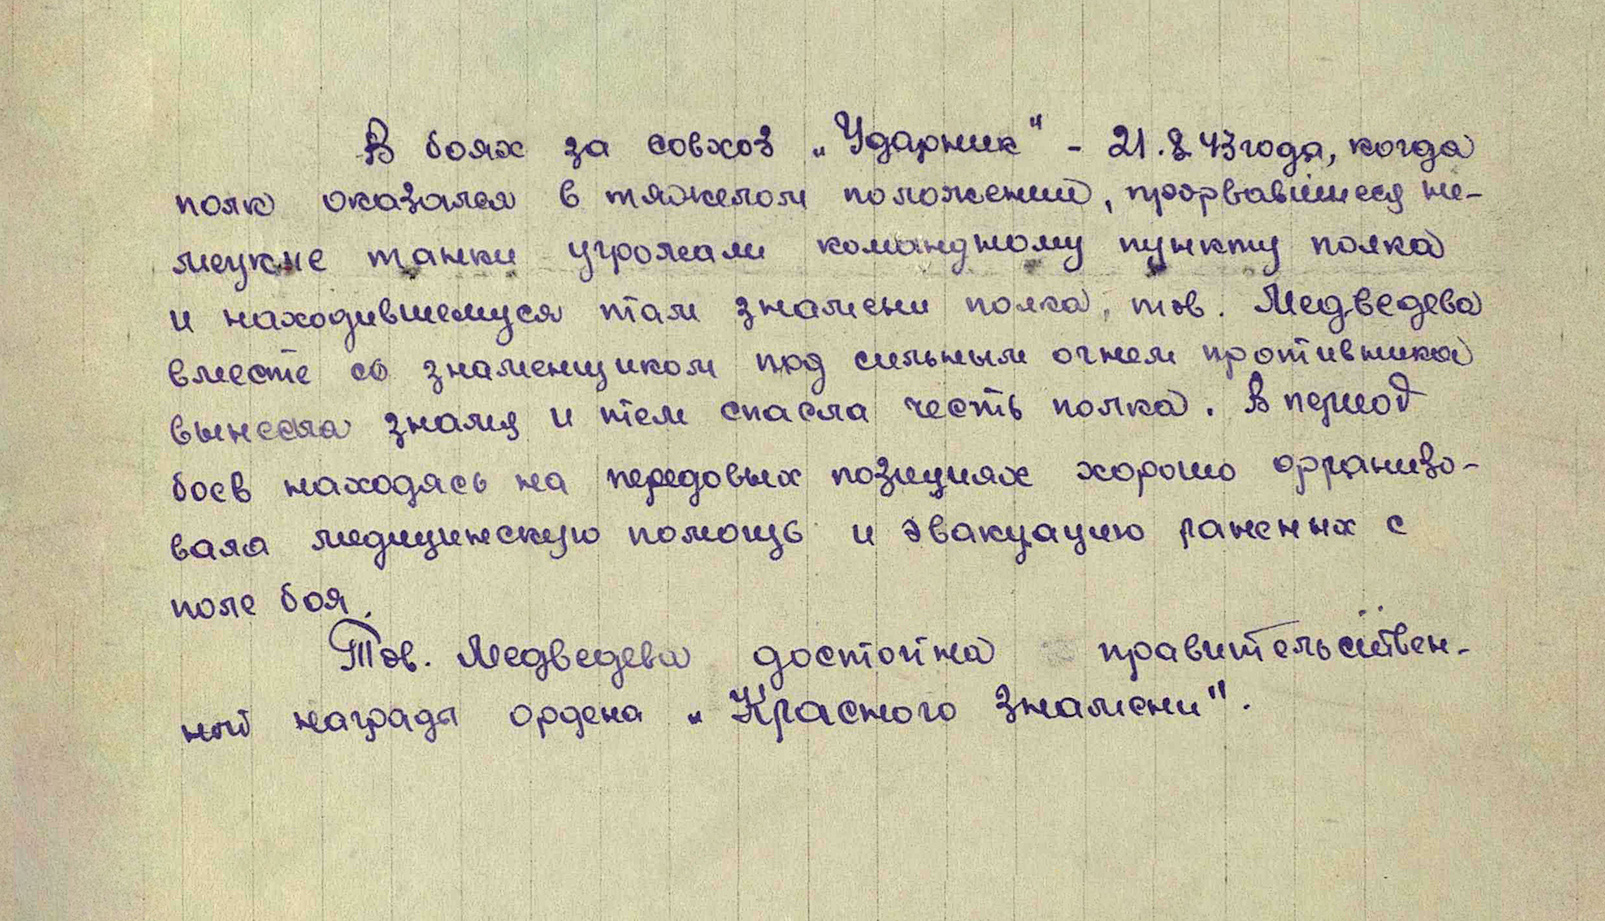 В боях за совхоз „Ударник" - 21.8.43 года, когда
полк оказался в тяжелом положении, прорвавшиеся не-
мецкие танки угрожали командному пункту полка
и находившемуся там знамени полка, тов. Медведева
вместе со знаменщиком под сильным огнем противника
вынесла знамя и тем спасла честь полка. В период
боев находясь на передовых позициях хорошо организо-
вала медицинскую помощь и эвакуацию раненых с
поле боя.
Тов. Медведева достойна правительствен-
ной награды ордена „Красного Знамени".